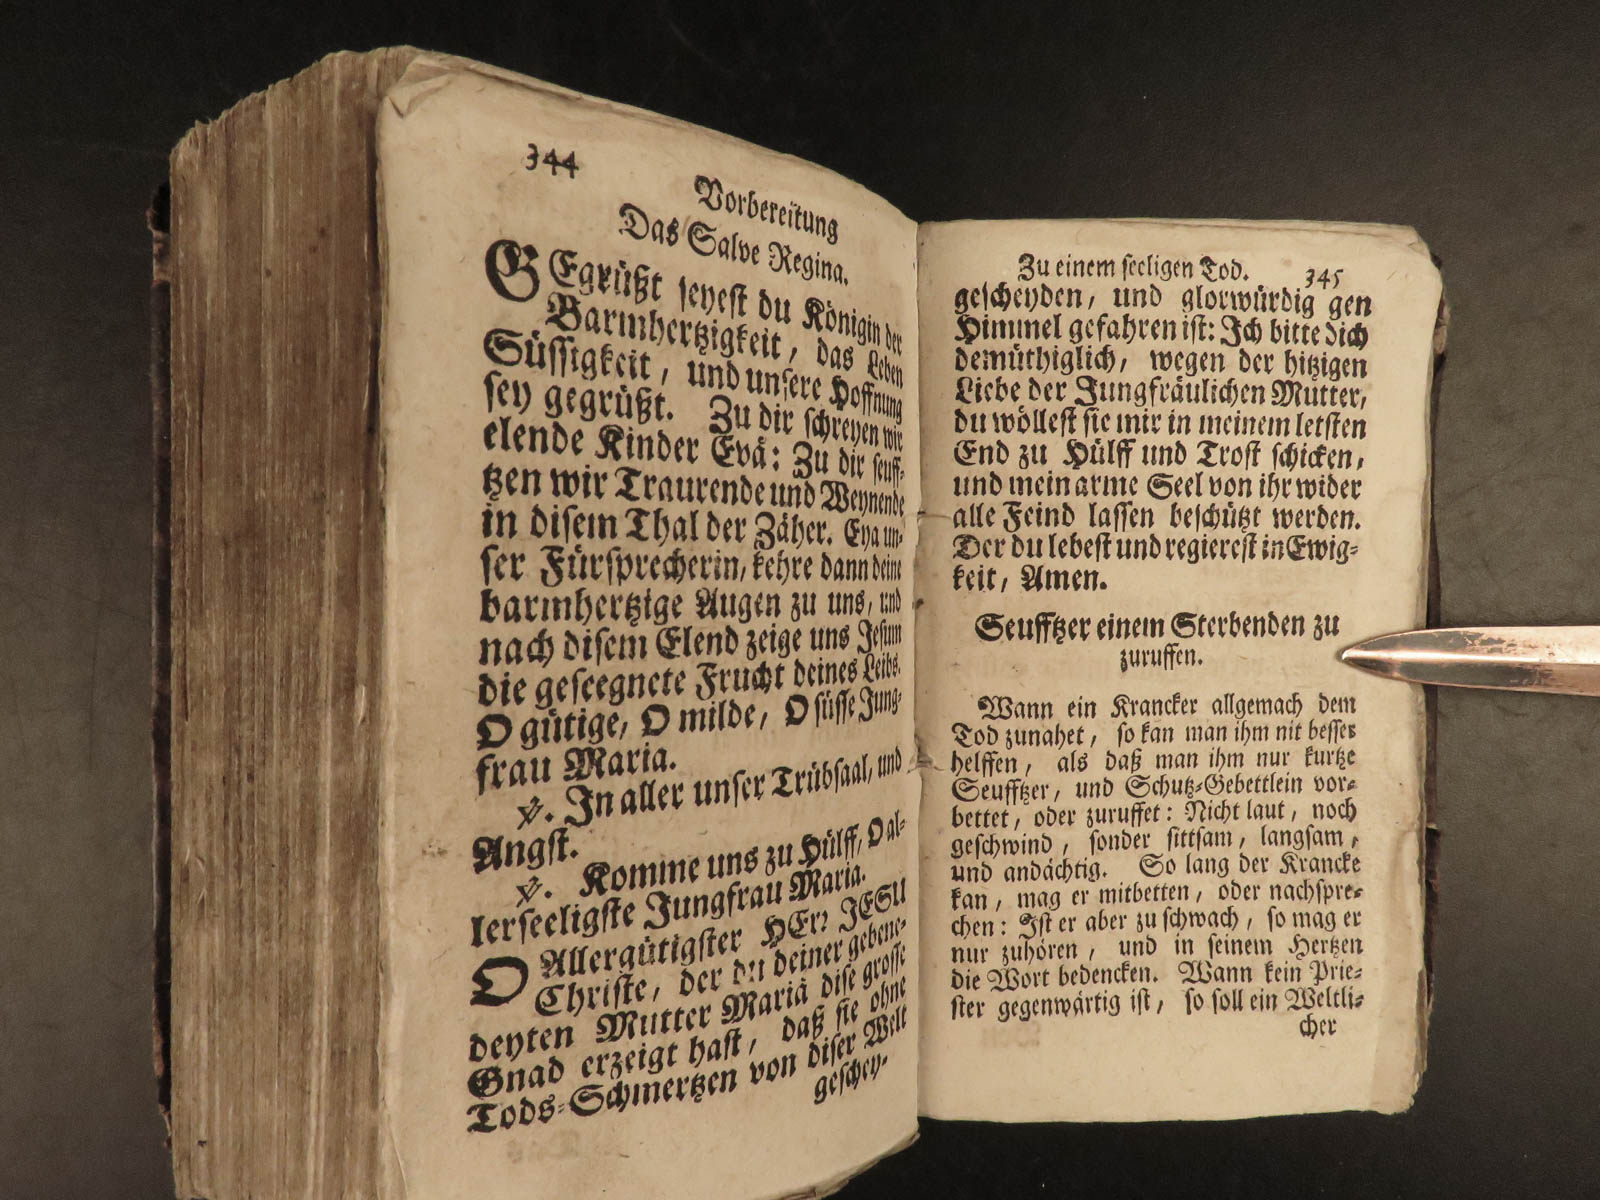 344
Vorbereitung
Das Salve Regina.
GEgrüßt seyest du Königin der
Barmhertzigkeit, das Leben
Süssigkeit, und unsere Hoffnung
sey gegrüßt. Zu dir schreyen wir
elende Kinder Evä: Zu dir seuff-
tzen wir Traurende und Weynende
in disem Thal der Zäher. Eya un-
ser Fürsprecherin, kehre dann deine
barmhertzige Augen zu uns, und
nach disem Elend zeige uns Jesum
die geseegnete Frucht deines Leibs.
O gütige, O milde, O süsse Jung-
frau Maria.
℣. In aller unser Trübsaal, und
Angst.
℣. Komme uns zu Hülff, O al-
lerseeligste Jungfrau Maria.
O Allergütigster HErr JESU
Christe, der du deiner gebene-
deyten Mutter Mariä dise grosse
Gnad erzeigt hast, daß sie ohne
Tods-Schmertzen von diser Welt
geschey-
Zu einem seeligen Tod. 345
gescheyden, und glorwürdig gen
Himmel gefahren ist: Ich bitte dich
demüthiglich, wegen der hitzigen
Liebe der Jungfräulichen Mutter,
du wöllest sie mir in meinem letsten
End zu Hülff und Trost schicken,
und mein arme Seel von ihr wider
alle Feind lassen beschützt werden.
Der du lebest und regierest in Ewig-
keit, Amen.
Seufftzer einem Sterbenden zu
zuruffen.
Wann ein Krancker allgemach dem
Tod zunahet, so kan man ihm nit besser
helffen, als daß man ihm nur kurtze
Seufftzer, und Schutz-Gebettlein vor-
bettet, oder zuruffet: Nicht laut, noch
geschwind, sonder sittsam, langsam,
und andächtig. So lang der Krancke
kan, mag er mitbetten, oder nachspre-
chen: Ist er aber zu schwach, so mag er
nur zuhören, und in seinem Hertzen
die Wort bedencken. Wann kein Prie-
ster gegenwärtig ist, so soll ein Weltli-
cher